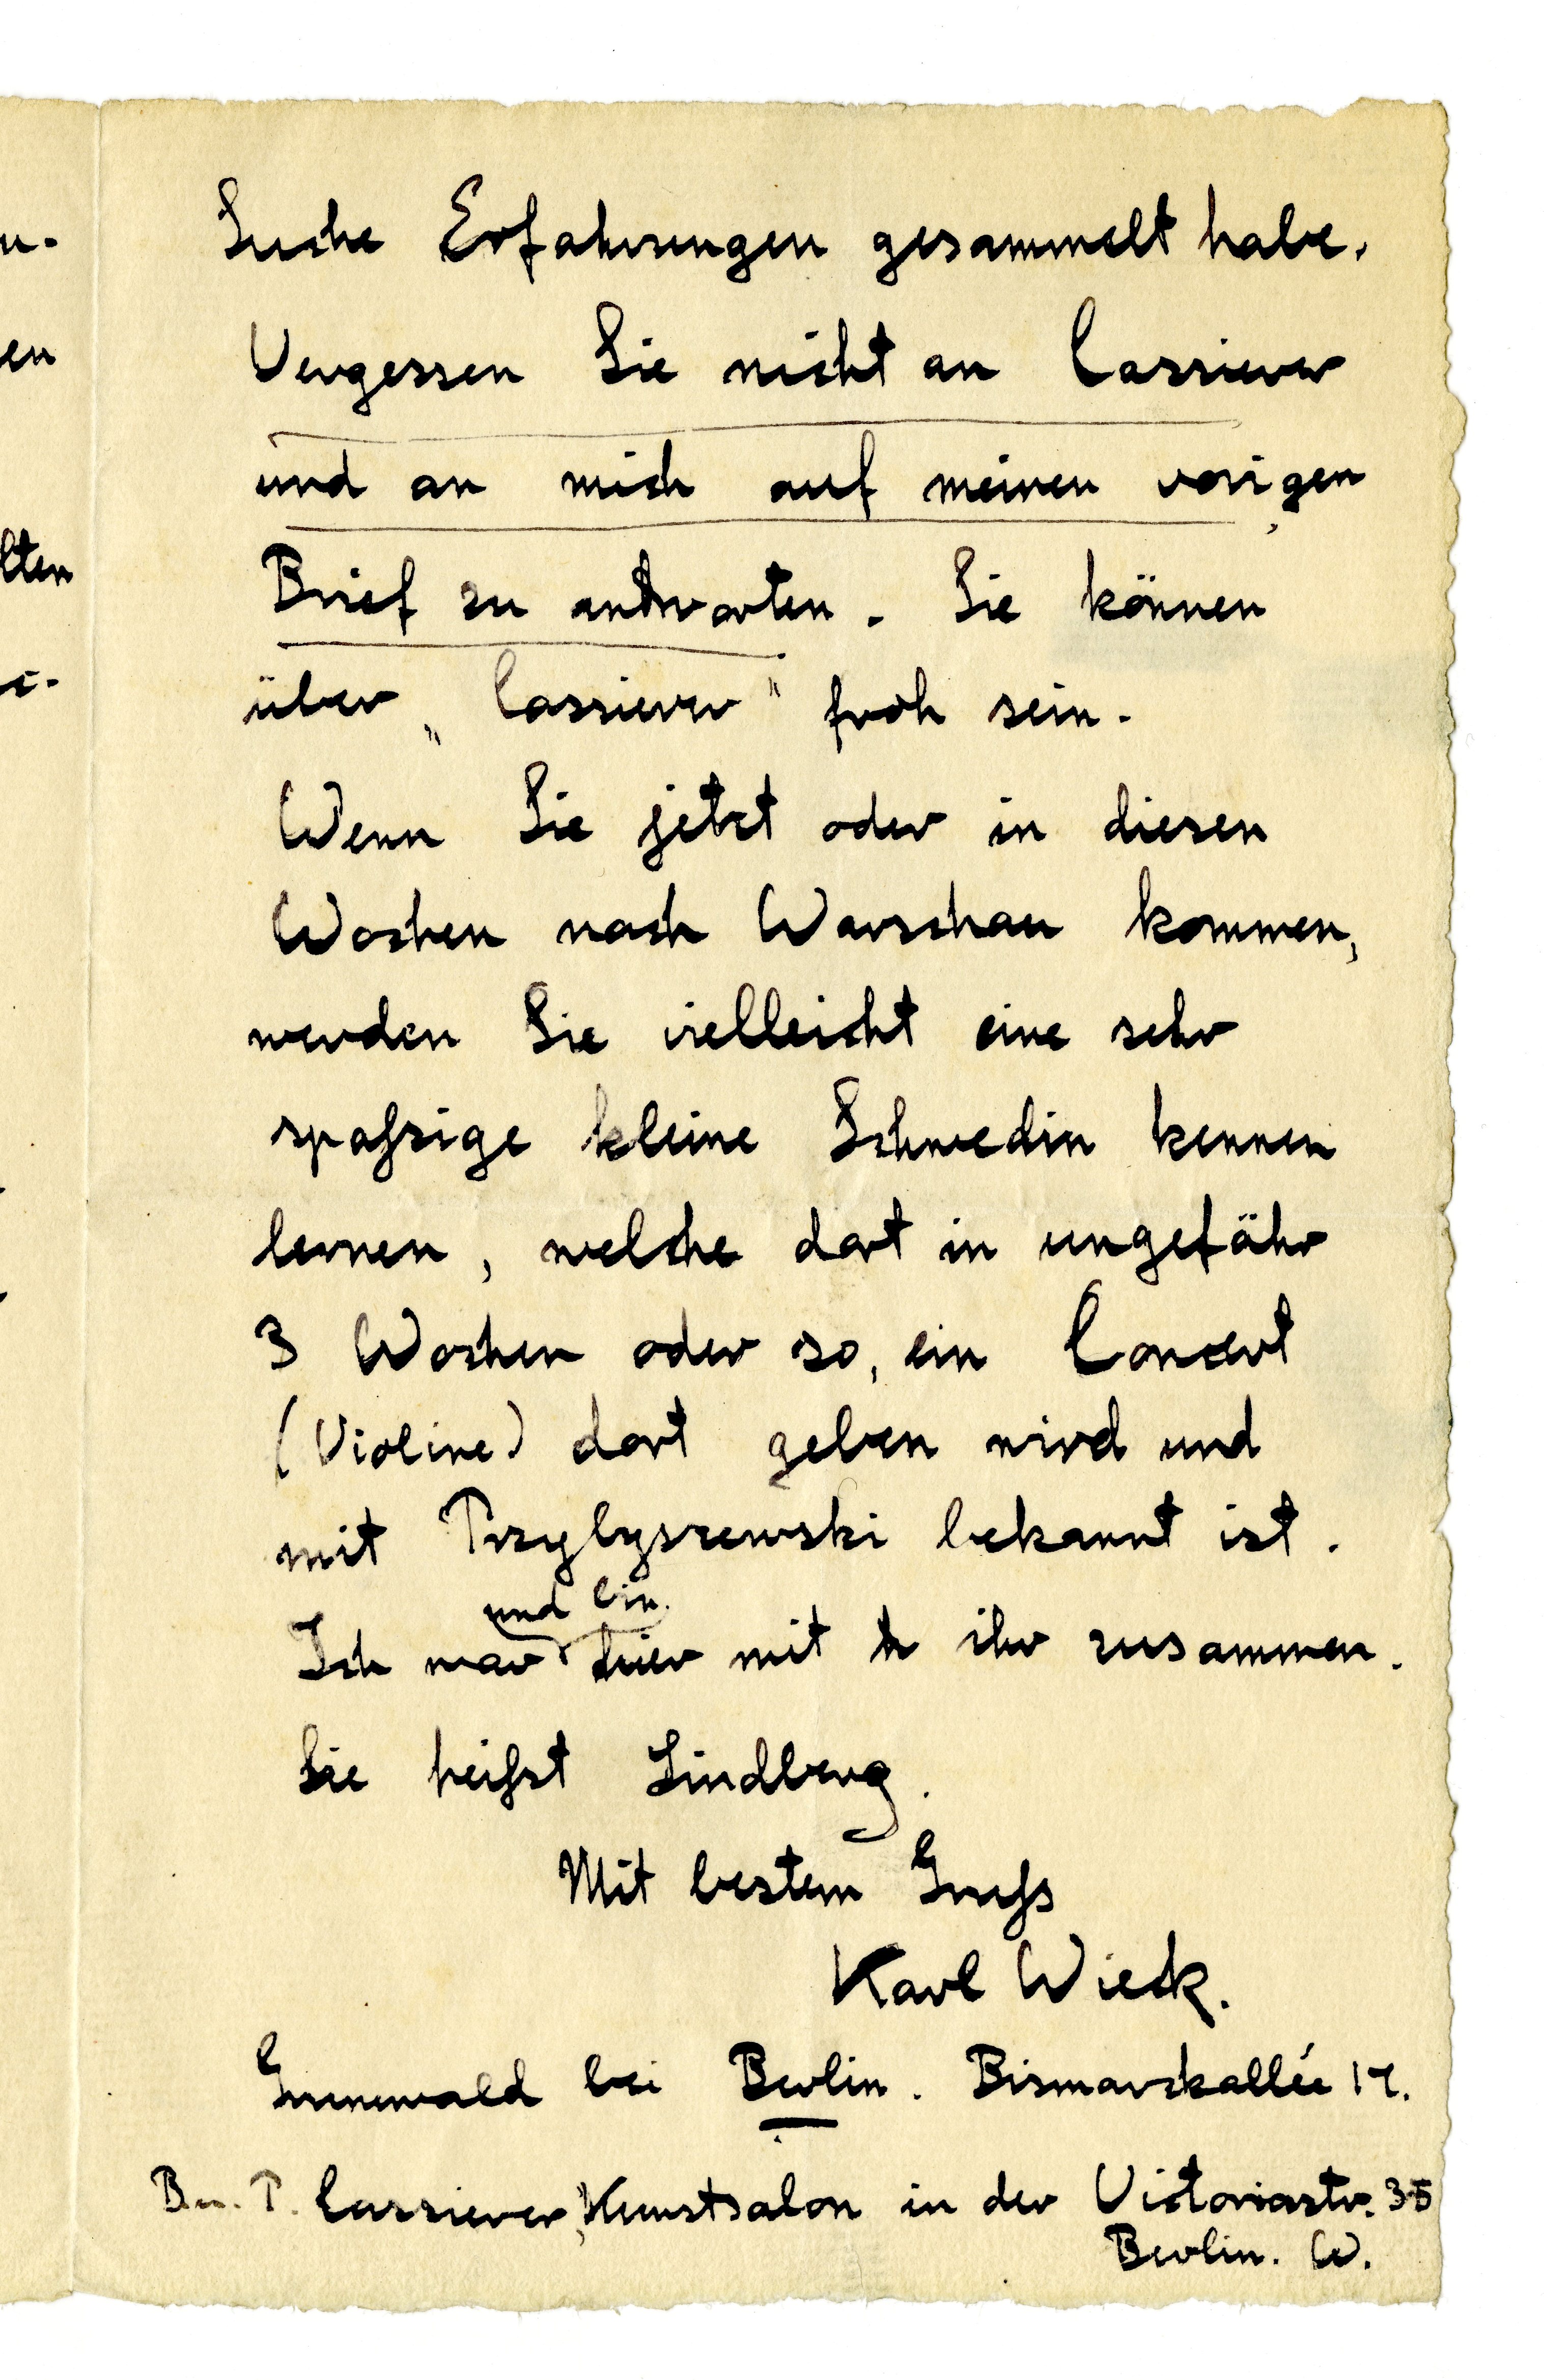 Suche Erfahrungen gesammelt habe.
Vergessen Sie nicht an Cassierer
und an mich auf meinen vorigen
Brief zu antworten. Sie können
über „Cassierer“ froh sein.
Wenn Sie jetzt oder in diesen
Wochen nach Warschau kommen,
werden Sie vielleicht eine sehr
spaßsige kleine Schwedin kennen
lernen, welche dort in ungefähr
3 Wochen oder so, ein Concert
(Violine) dort geben wird und
mit Przybyszewski bekannt ist.
und bin
Ich war hier mit ihr zusammen.
Sie heißst Lindberg.
Mit bestem Gruß
Karl Wieck.
Grunewald bei Berlin. Bismarckallée 17.
B. u. P. Cassierer, Kunstsalon in der Victoriastr. 35
Berlin. W.
en
lten